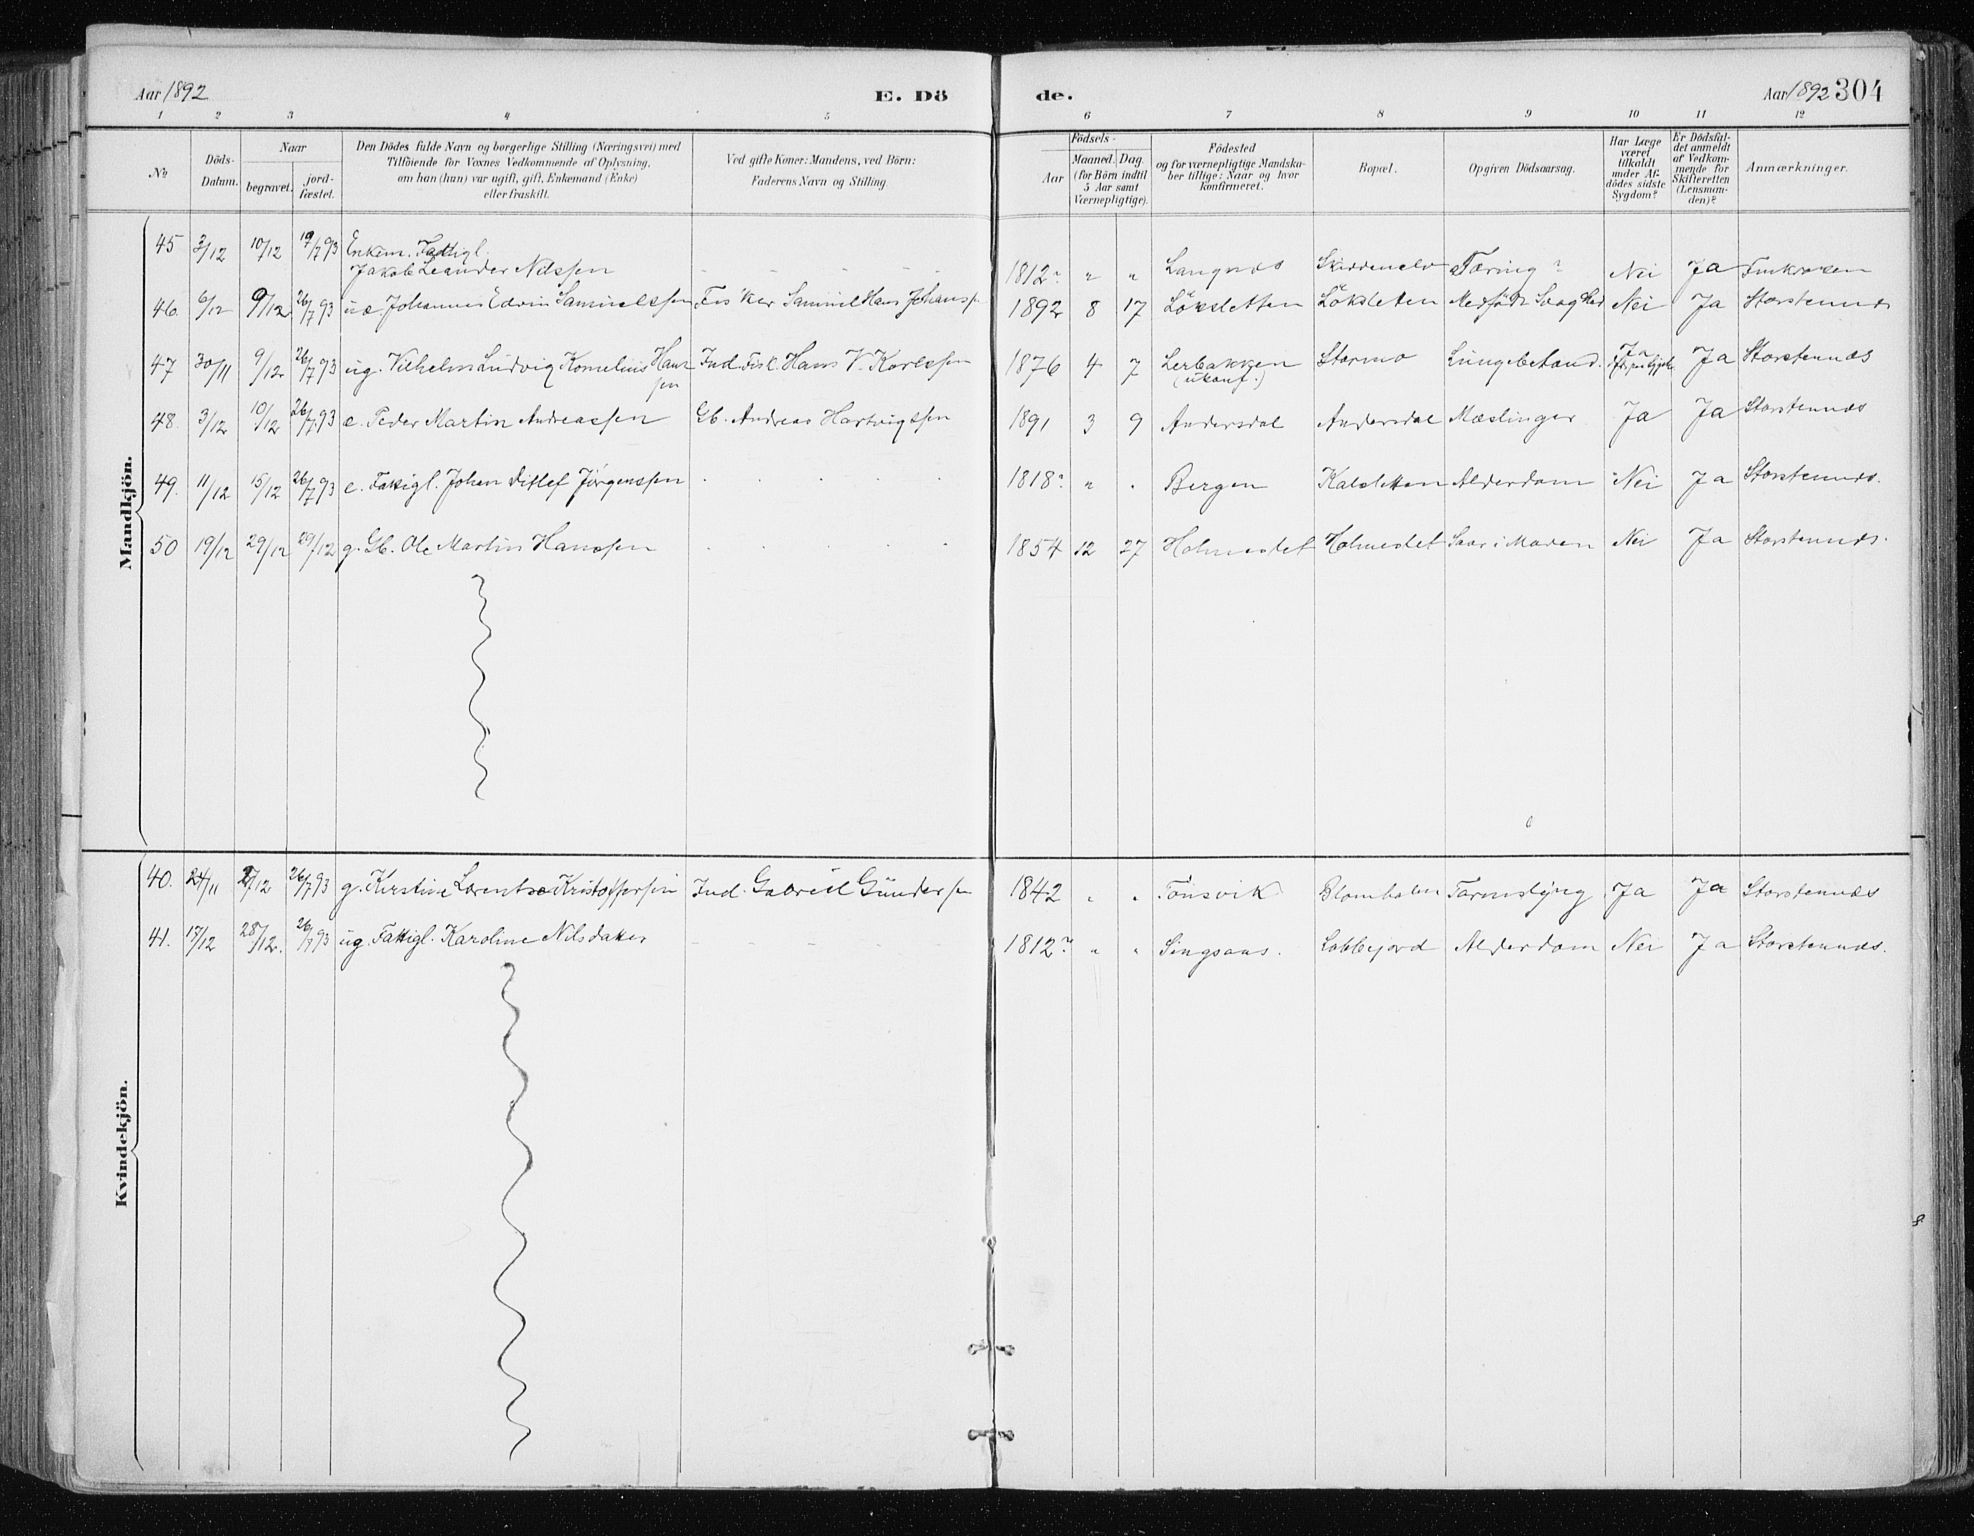 Aar 1892
E. Dö
de.
Aar 1892 304
1 2 3 4 5 6 7 8 9 10 11 12
№
Döds-Datum.
Naar
begravet.
jord-fæstet.
Den Dödes fulde Navn og borgerlige Stilling (Næringsvei) med
Tilföiende for Voxnes Vedkommende af Oplysning,
om han (hun) var ugift, gift, Enkemand (Enke)
eller fraskilt.
Ved gifte Koner: Mandens, ved Börn:
Faderens Navn og Stilling
Födsels-
Aar
Maaned. (for Börn indtil 5 Aar samt Værnepligtige).
Dag.
Födested
og for værnepligtige Mandska-
ber tillige: Naar og hvor
konfirmeret.
Bopæl.
Opgiven Dödsaarsag.
Har Læge været tilkaldt under Af-dödes sidste Sygdom?
Er Dödsfal-det anmeldt af Vedkom-mende for Skifteretten (Lensman-den)?
Anmærkninger.
Mandkjön.
45 3/12 10/12 19/7 93 Enkem. Fattigl.
Jakob Leander Nilssen - - - - 1812? " " Langnes Skiddenelv Tæring? Nei Ja
46. 6/12 9/12 26/7 93 u.æ. Johannes Edvin Samuelssen Fisker Samuel Hans Johanss. 1892 8 17 Löksletten Löksletten Medfödt Svaghed Nei Ja Storstennes
47 30/11 9/12 26/7 93 ug. Vilhelm Ludvig Kornelius Hans
sen Ind. Fisk. Hans V. Karlssen 1876 4 7 Lerbakken Stormo Lungebetænd. Ja Ja Storstennes
(ukonf.)
48. 3/12 10/12 26/7 93 e. Peder Martin Andreassen Gb. Andreas Hartvigssen 1891 3 9 Andersdal Andersdal Mæslinger Ja Ja Storstennes
49. 11/12 15/12 26/7 93 e. Fattigl. Johan Ditlef Jörgenssen 1818? " " Bergen Kalsletten Alderdom Nei Ja Storstennes.
50 19/12 29/12 29/12 g. Gb. Ole Martin Hanssen 1854 12 27 Holmeslet Holmeslet Saar i Maven Nei Ja Storstennes.
Kvindekjön.
40. 24/11 2/12 26/7 93 g. Kirstine Lorentse Kristoffersen Ind. Gabriel Gundersen 1842 " " Tönsvik Tarmslyng Ja Ja Storstennes
41. 18/12 28/12. 26/7 93 ug. Fattigl. Karoline Nilsdatter - - - 1812? " " Lobbejord Alderdom Nei Ja Storstennes.